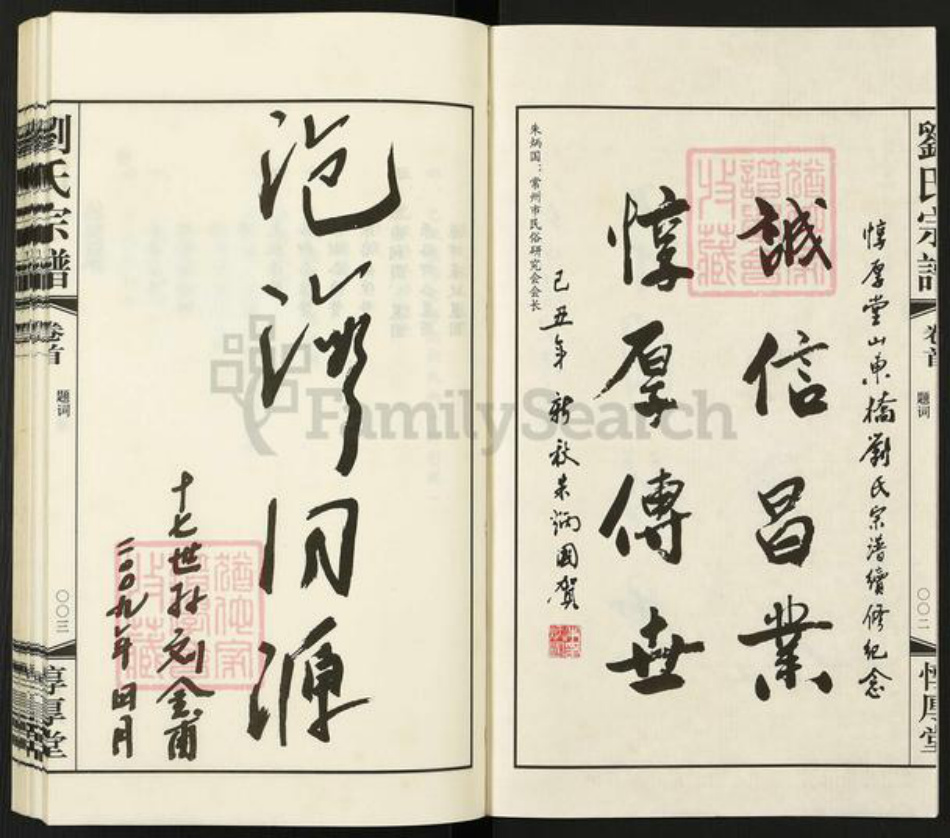 劉氏宗譜
卷首
题词
〇〇二
惇厚堂
惇厚堂山東橋劉氏宗譜續修紀念
誠信昌業
惇厚傳世
己丑年新秋朱炳國賀
朱炳国：常州市民俗研究会会长
同源
十七世孙刘金甫
二〇〇九年四月
劉氏宗譜
卷首
题词
〇〇三
惇厚堂
FamilySearch